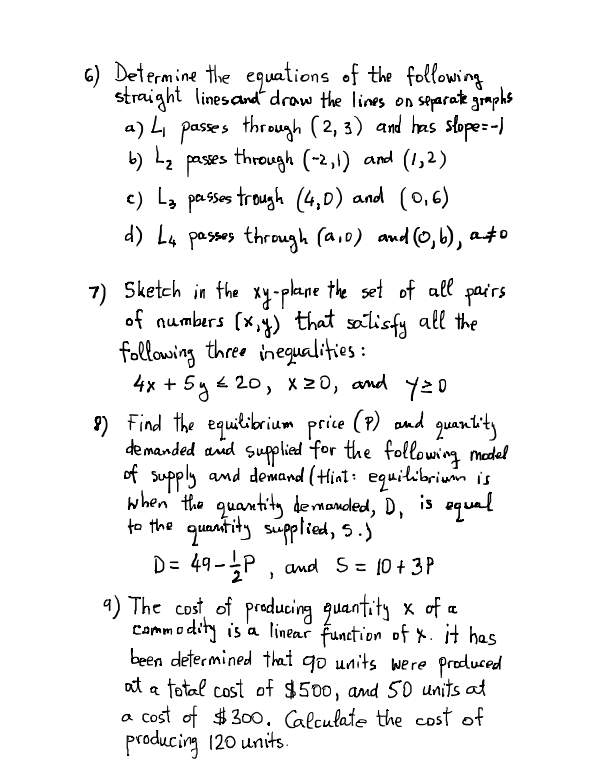 6) Determine the equations of the following
straight lines and draw the lines on separate graphs
a) L₁ passes through (2, 3) and has slope=-1
b) L₂ passes through (-2,1) and (1,2)
c) L₃ passes trough (4,0) and (0,6)
d) L₄ passes through (a,0) and (0,b), a≠0
7) Sketch in the xy-plane the set of all pairs
of numbers (x,y) that satisfy all the
following three inequalities:
4x + 5y ≤ 20, x ≥ 0, and y ≥ 0
8) Find the equilibrium price (P) and quantity
demanded and supplied for the following model
of supply and demand (Hint: equilibrium is
when the quantity demanded, D, is equal
to the quantity supplied, S.)
D = 49 - 1/2 P , and S = 10 + 3P
9) The cost of producing quantity x of a
commodity is a linear function of x. it has
been determined that 90 units were produced
at a total cost of $500, and 50 units at
a cost of $300. Calculate the cost of
producing 120 units.